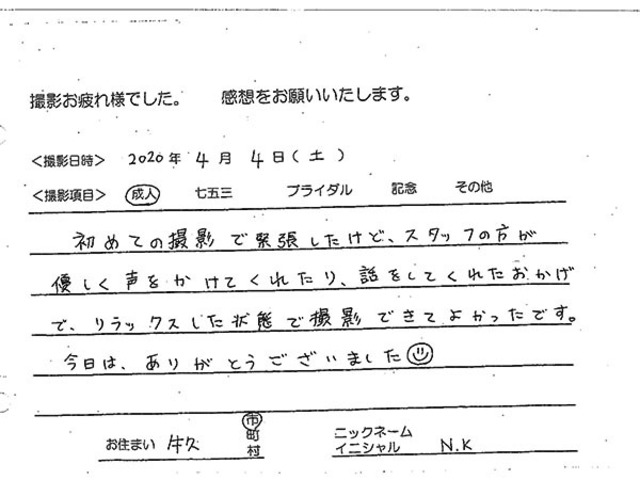 撮影お疲れ様でした。 感想をお願いいたします。
<撮影日時> 2020年 4月 4日(土)
<撮影項目> 成人 七五三 ブライダル 記念 その他
初めての撮影で緊張したけど、スタッフの方が
優しく声をかけてくれたり、話をしてくれたおかげ
で、リラックスした状態で撮影できてよかったです。
今日は、ありがとうございました
お住まい 牛久 市町村 ニックネーム イニシャル N.K